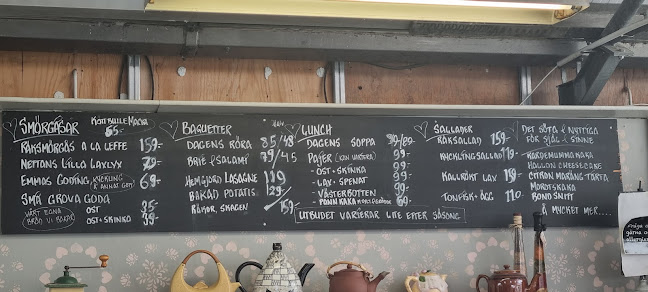 SMÖRGÅSAR KÖTTBULLEMACKA
65-
RÄKSMÖRGÅS A LA LEFFE 159-
NETTANS LILLA LAXLYX 79-
EMMAS GODING KYCKLING & ANNAT GOTT 69-
SMÅ GROVA GODA
VÅRT EGNA BRÖD VI BAKAR
OST 35-
OST & SKINKA 39-
BAGUETTER
DAGENS RÖRA 85/48
BRIE/SALAMI 79/45
HEMGJORD LASAGNE 119
BAKAD POTATIS 129/
RÄKOR, SKAGEN 159-
LUNCH
DAGENS SOPPA
PAJER (KAN VARIERA) 99-
- OST & SKINKA 99-
- LAX & SPENAT 99-
- VÄSTERBOTTEN 99-
UTBUDET VARIERAR LITE EFTER SÄSONG
SALLADER
RÄKSALLAD 159-
KYCKLINGSALLAD 119-
KALLRÖKT LAX 159-
TONFISK & ÄGG 110-
DET SÖTA & NYTTIGA
FÖR SJÄL & SINNE
KARDEMUMMAKAKA
HALLON CHEESECAKE
CITRON MARÄNG TÅRTA
MOROTSKAKA
BOND SNITT
& MYCKET MER....